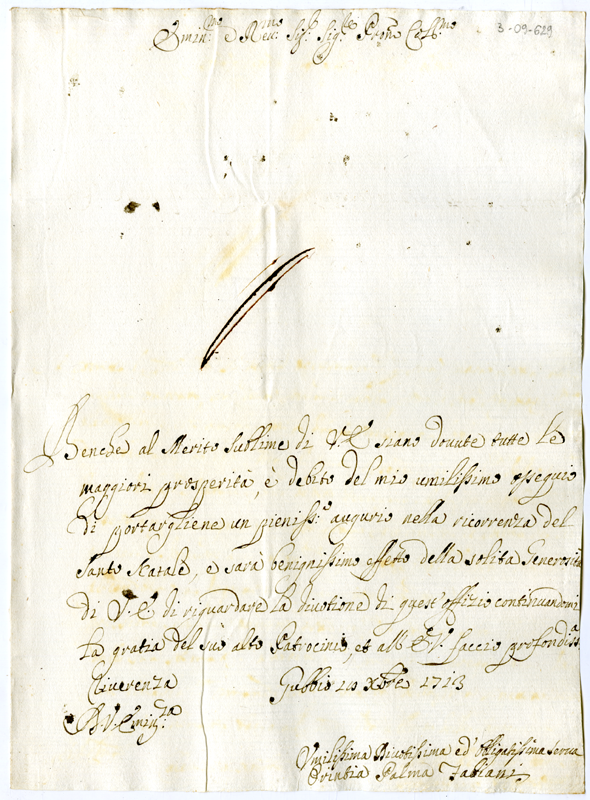 3-09-629
Emin.mo e Rev.mo Sig.r Sig.re Pron.e Coll.mo
Benche al Merito sublime di V.E siano dovute tutte le
maggiori prosperità, è debito del mio umilissimo osseguio
di portargliene un pieniss:o augurio nella ricorrenza del
Santo Natale, e sarà benignissimo effetto della solita Generosità
di V.E di riguardare la divotione di quest'offizio continuandomi
la gratia del suo alto Patrocinio, et all'E.V. faccio profondiss.a
Riverenza
Gubbio 10 Xbre 1713
D. V. Emin.za
Vmilissima Divotissima ed Obligatissima Serva
Orintia Palma Fabiani